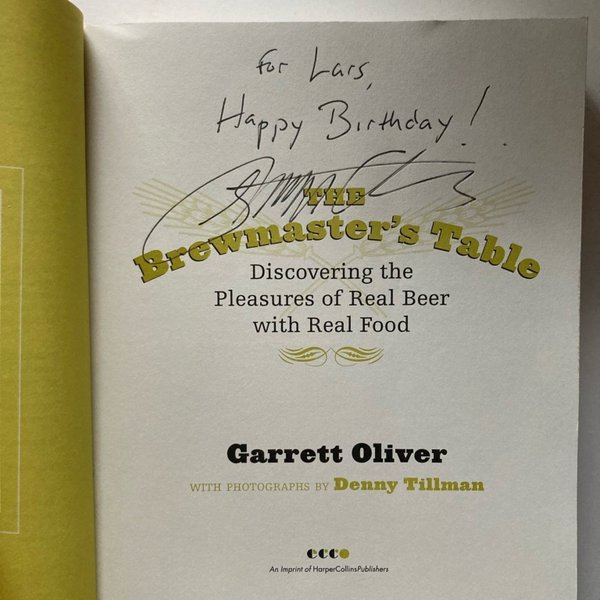 For Lars,
Happy Birthday!
THE
Brewmaster's Table
Discovering the
Pleasures of Real Beer
with Real Food
Garrett Oliver
WITH PHOTOGRAPHS BY Denny Tillman
ecco
An Imprint of HarperCollinsPublishers